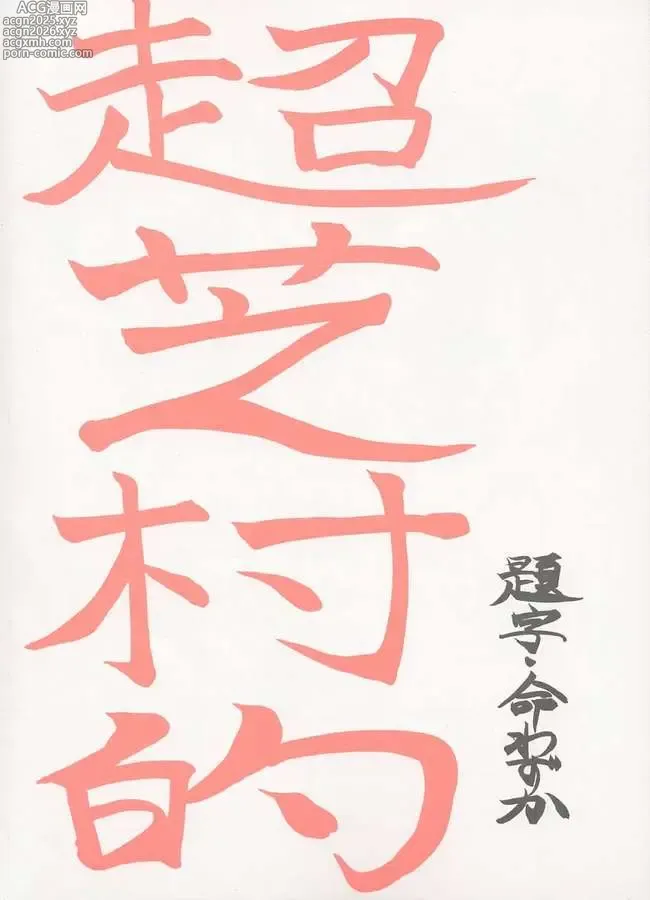 ACG漫画网
acgn2025.xyz
acgn2026.xyz
acgxmh.com
porn-comic.com
超芝村的
題字・命わずか